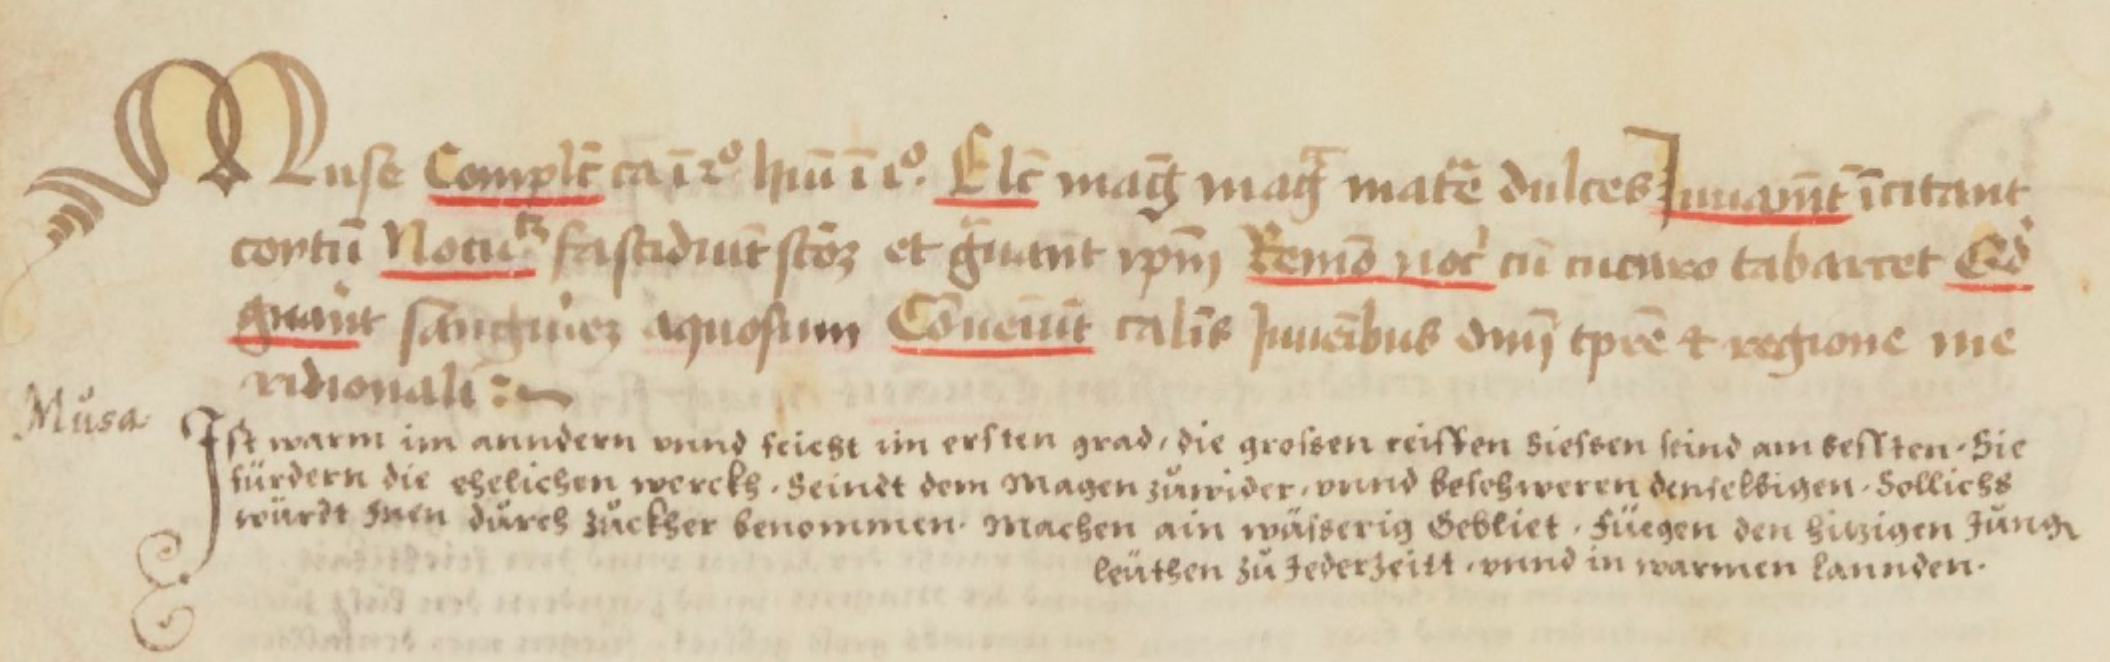 Muse Complc̄ ca ī 2º. hiū ī 1º. Elc̄ mag̃ mag̃ matẽ dulces Juuamt̄ īcitant
coytū Nocu fastidiūt stōȝ et g̃uant ypm̄ Remō noc̄ cū cucaro tabarcet Cō
gnant sanguiēȝ aquosum Cōueniūt calīs Juuēibus omnȳ tpr̄e et regione me
ridionali :~
Můsa
Ist warm im anndern vnnd feicht im ersten grad, die grossen reiffen siessen seind am bessten. Sie
fürdern die ehelichen werckh. Seindt dem Magen zůwider, vnnd beschweren denselbigen. Sollichs
würdt Inen důrch zůckher benommen. Machen ain wässerig Gebliet. Füegen den hitzigen Jůng
leüthen zů Jederzeitt, vnnd in warmen lannden.